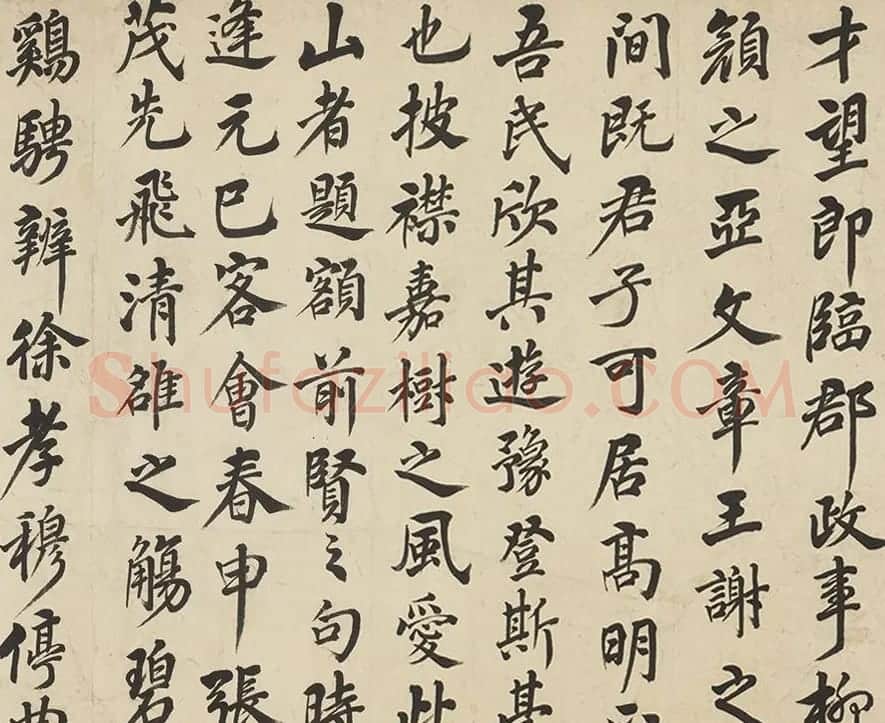 才望即臨郡政事柳
顔之亞文章王謝之
間既君子可居髙明
吾民欣其遊豫登斯
也披襟嘉樹之風愛此
山者題額前賢之句時
逢元巳客會春申張
茂先飛清雒之觴碧
鷄騁辨徐孝穆停
Shufaziliao.COM